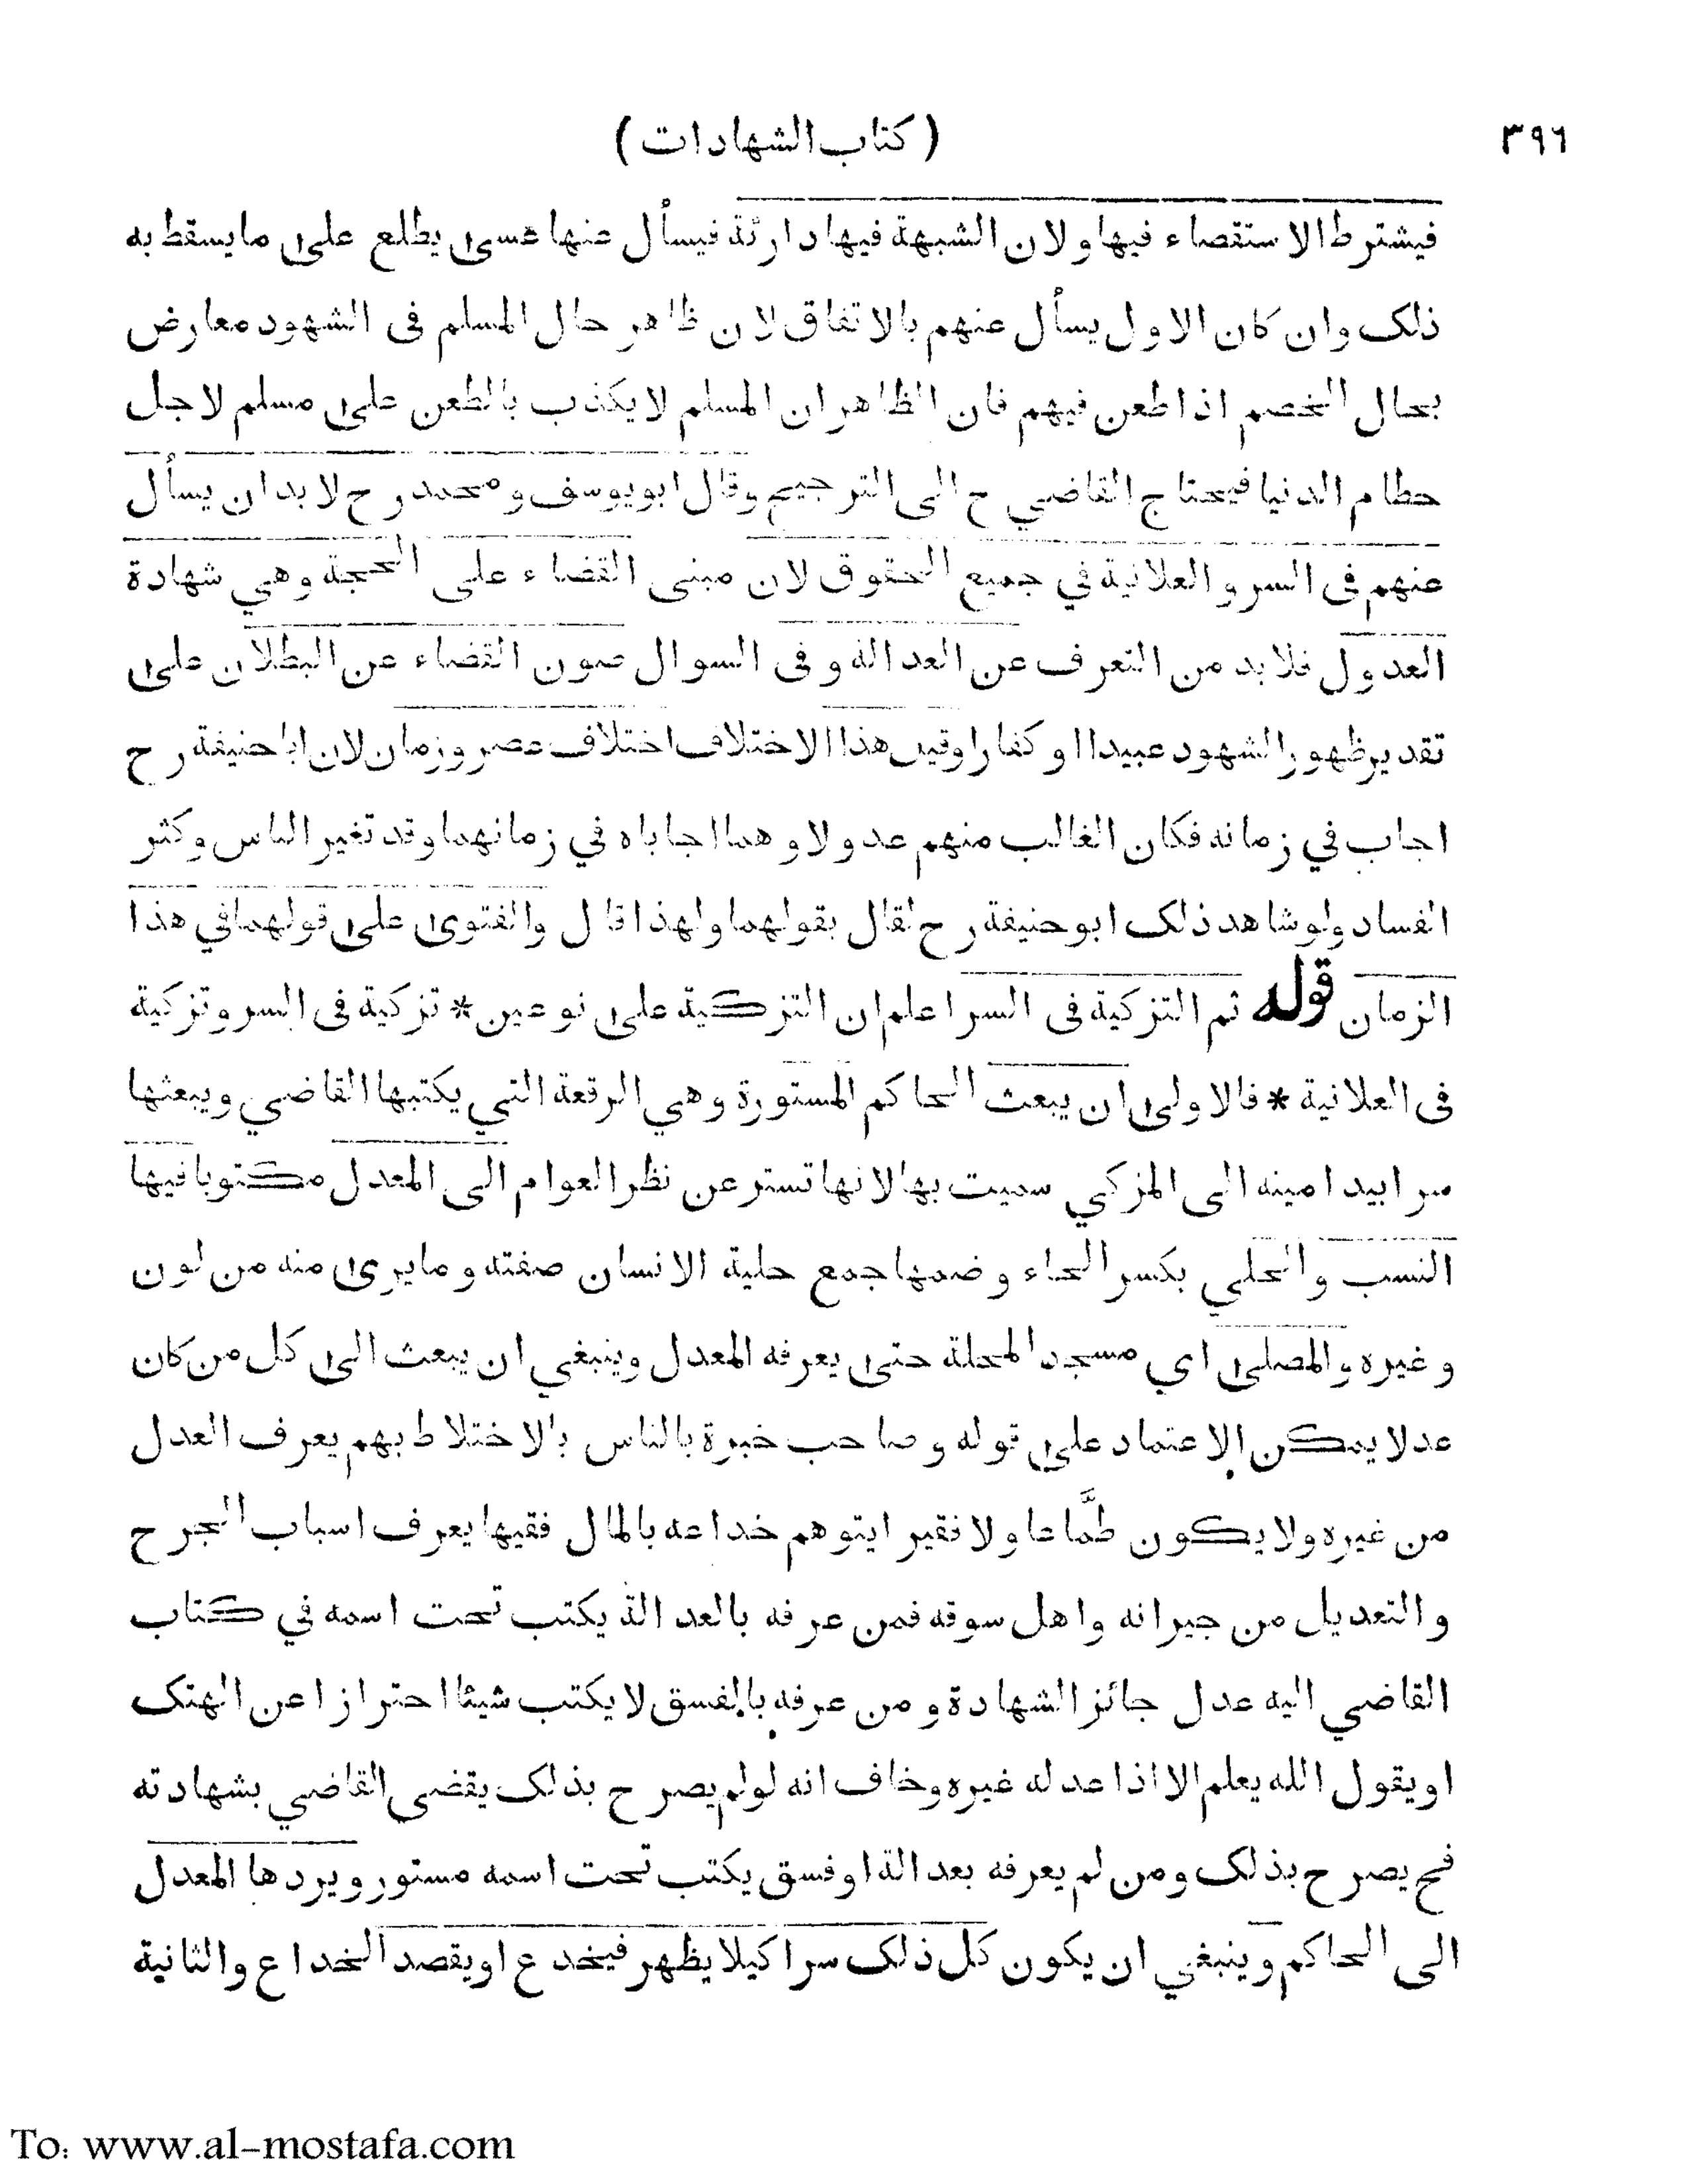 ٣٩٦
( كتاب الشهادات )
فيشترط الاستقصاء فيها ولان الشبهة فيها دارئة فيسأل عنها عسى يطلع على ما يسقط به
ذلك وان كان الاول يسأل عنهم بالاتفاق لان ظاهر حال المسلم فى الشهود معارض
بحال الخصم اذا طعن فيهم فان الظاهر ان المسلم لا يكذب بالطعن على مسلم لاجل
حطام الدنيا فيحتاج القاضي ح الى الترجيح وقال ابو يوسف ومحمد رح لا بد ان يسأل
عنهم فى السر والعلانية في جميع الحقوق لان مبنى القضاء على الحجة وهي شهادة
العدول فلا بد من التعرف عن العدالة وفى السوال صون القضاء عن البطلان على
تقدير ظهور الشهود عبيدا او كفارا وقيل هذا الاختلاف اختلاف عصر وزمان لان ابا حنيفة رح
اجاب في زمانه فكان الغالب منهم عدولا وهما اجاباه في زمانهما وقد تغير الناس وكثر
الفساد ولو شاهد ذلك ابو حنيفة رح لقال بقولهما ولهذا قال والفتوى على قولهما في هذا
الزمان قوله ثم التزكية فى السر اعلم ان التزكية على نوعين * تزكية فى السر وتزكية
فى العلانية * فالاولى ان يبعث الحاكم المستورة وهي الرقعة التي يكتبها القاضي ويبعثها
سرا بيد امينه الى المزكي سميت بها لانها تستر عن نظر العوام الى المعدل مكتوبا فيها
النسب والحلي بكسر الحاء وضمها جمع حلية الانسان صفته وما يرى منه من لون
وغيره والمصلى اي مسجد المحلة حتى يعرفه المعدل وينبغي ان يبعث الى كل من كان
عدلا يمكن الاعتماد على قوله وصاحب خبرة بالناس بالاختلاط بهم يعرف العدل
من غيره ولا يكون طمَّاعا ولا فقيرا يتوهم خداعه بالمال فقيها يعرف اسباب الجرح
والتعديل من جيرانه واهل سوقه فمن عرفه بالعدالة يكتب تحت اسمه في كتاب
القاضي اليه عدل جائز الشهادة ومن عرفه بالفسق لا يكتب شيئا احترازا عن الهتك
او يقول الله يعلم الا اذا عدله غيره وخاف انه لو لم يصرح بذلك يقضى القاضي بشهادته
فح يصرح بذلك ومن لم يعرفه بعدالة او فسق يكتب تحت اسمه مستور ويردها المعدل
الى الحاكم وينبغي ان يكون كل ذلك سرا كيلا يظهر فيخدع او يقصد الخداع والثانية
To: www.al-mostafa.com